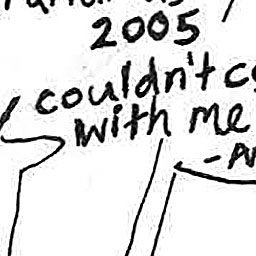 2005
couldn't
with me